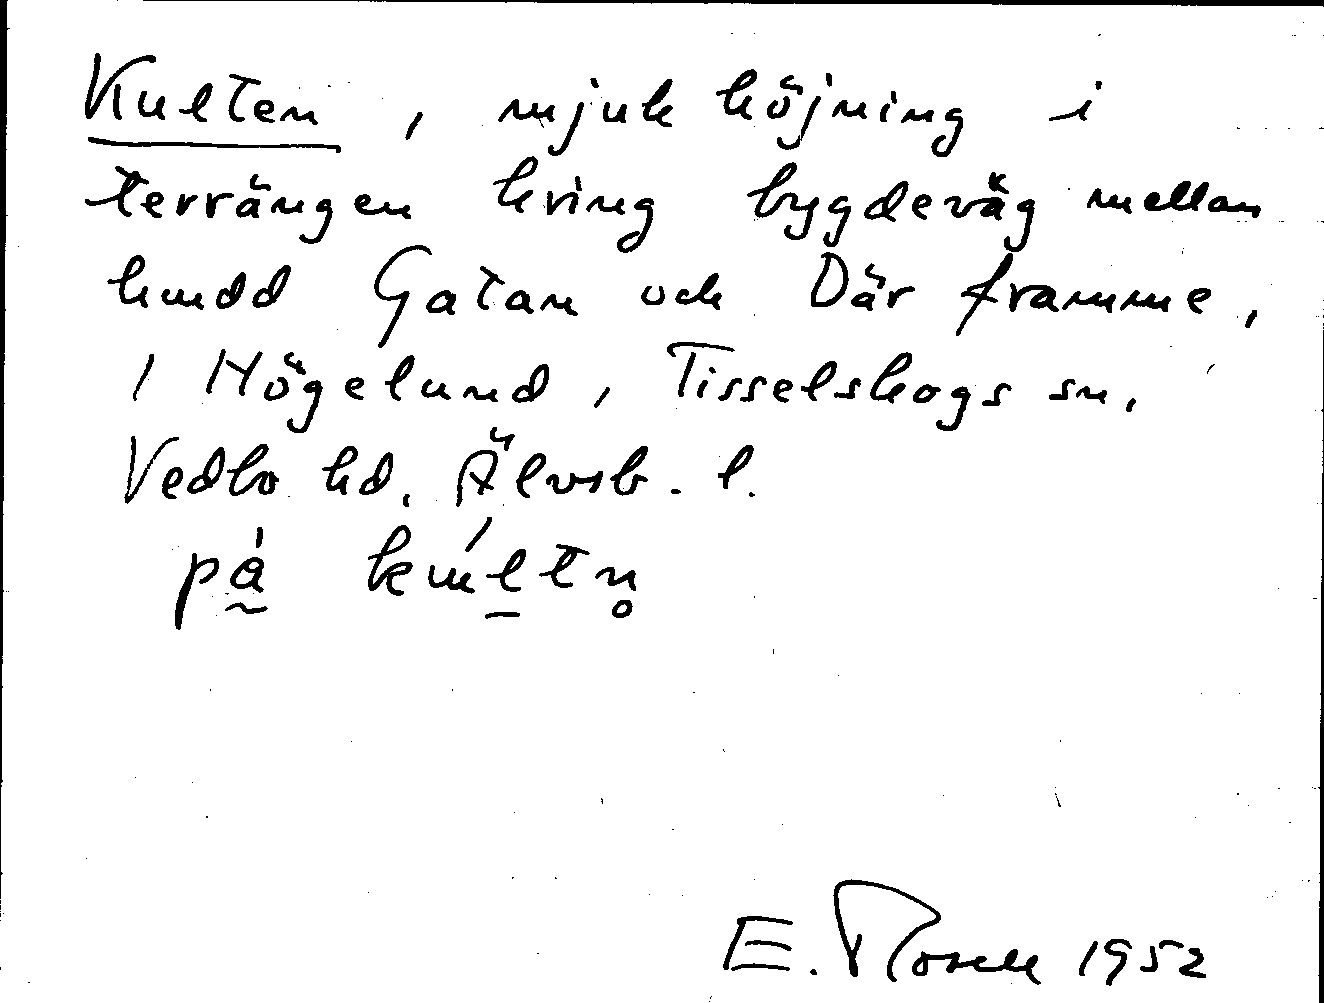 Kulten, mjuk höjning i
terrängen kring bygdeväg mellan
hmdd Gatan och Där framme,
1 Högelund, Tisselskogs sn.
Vedbo hd. Älvsb. l.
på kúltn̥
E. Rosell 1952